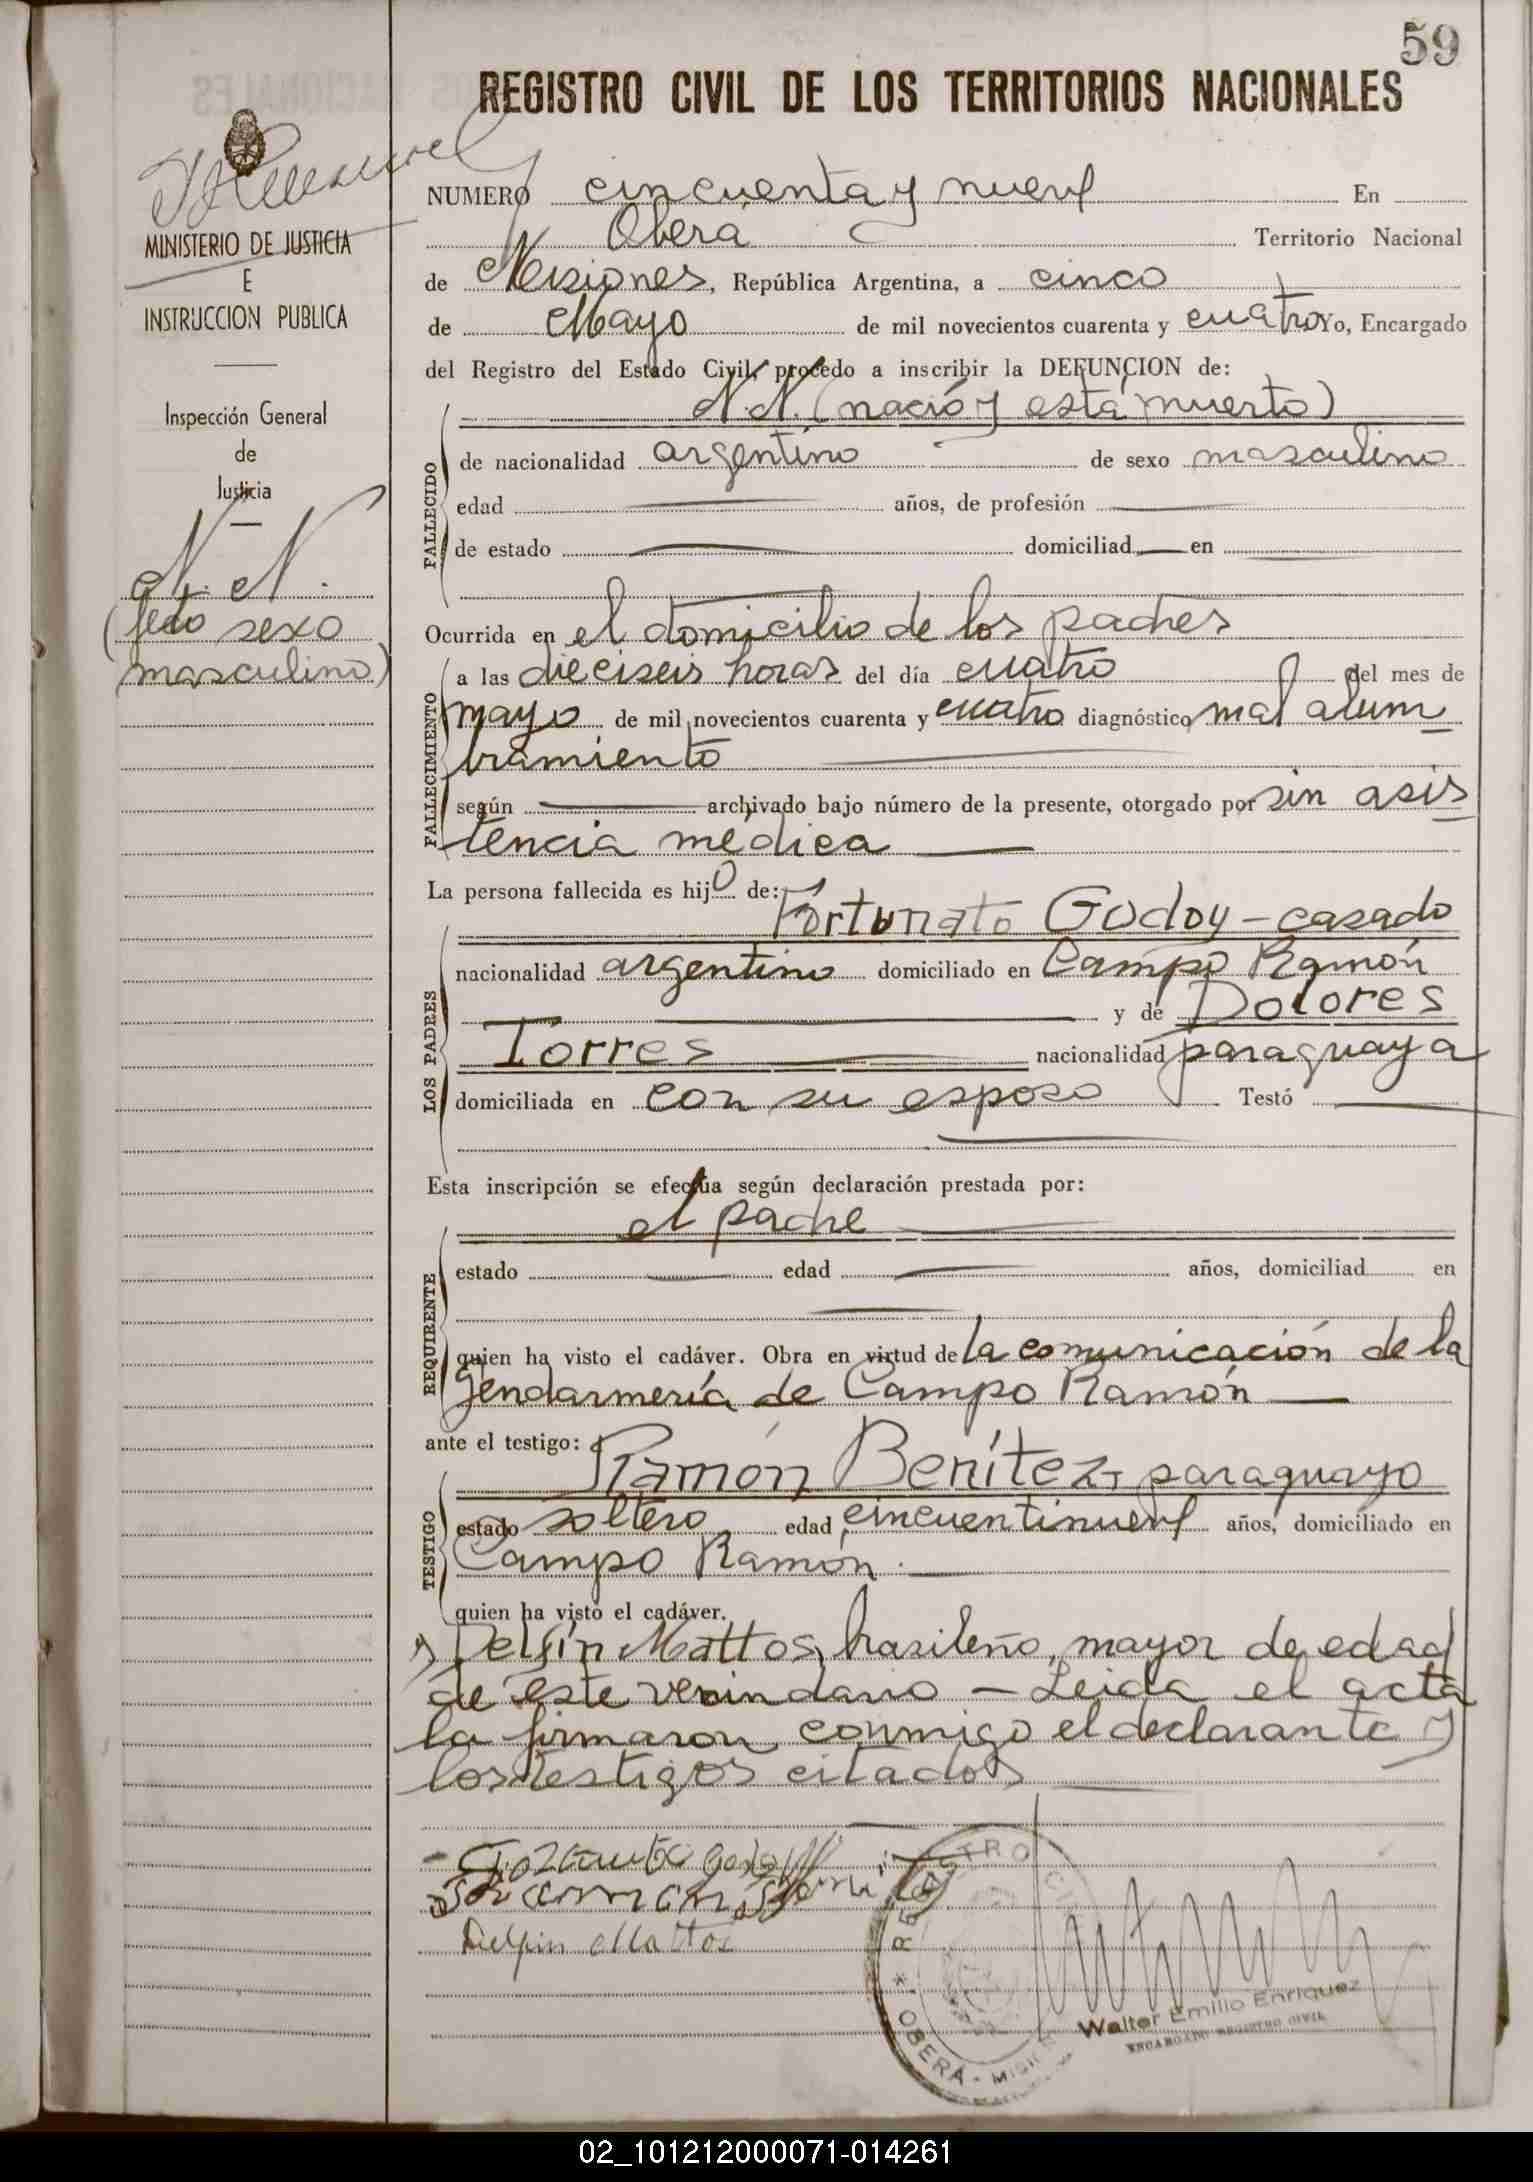 59
REGISTRO CIVIL DE LOS TERRITORIOS NACIONALES
MINISTERIO DE JUSTICIA
E
INSTRUCCION PUBLICA
Inspección General
de
Justicia
N. N.
(feto sexo
masculino)
NUMERO cincuenta y nueve En
Oberá Territorio Nacional
de Misiones, República Argentina, a cinco
de Mayo de mil novecientos cuarenta y cuatro Yo, Encargado
del Registro del Estado Civil, procedo a inscribir la DEFUNCION de:
N. N. (nació y está muerto)
FALLECIDO
de nacionalidad argentino de sexo masculino
edad años, de profesión
de estado domiciliad en
Ocurrida en el domicilio de los padres
FALLECIMIENTO
a las dieciseis horas del día cuatro del mes de
mayo de mil novecientos cuarenta y cuatro diagnóstico mal alum
bramiento
según archivado bajo número de la presente, otorgado por sin asis
tencia médica
La persona fallecida es hijo de:
LOS PADRES
Fortunato Godoy - casado
nacionalidad argentino domiciliado en Campo Ramón
y de Dolores
Torres nacionalidad paraguaya
domiciliada en con su esposo Testó
Esta inscripción se efectúa según declaración prestada por:
el padre
REQUIRENTE
estado edad años, domiciliad en
quien ha visto el cadáver. Obra en virtud de la comunicación de la
gendarmería de Campo Ramón
ante el testigo:
TESTIGO
Ramón Benítez, paraguayo
estado soltero edad cincuentinueve años, domiciliado en
Campo Ramón.
quien ha visto el cadáver.
y Delfín Mattos, brasileño, mayor de edad
de este vecindario - Leida el acta
la firmaron conmigo el declarante y
los testigos citados
Delfin Mattos
REGISTRO CIVIL
OBERÁ - MISIONES
Walter Emilio Enriquez
ENCARGADO REGISTRO CIVIL
02_101212000071-014261